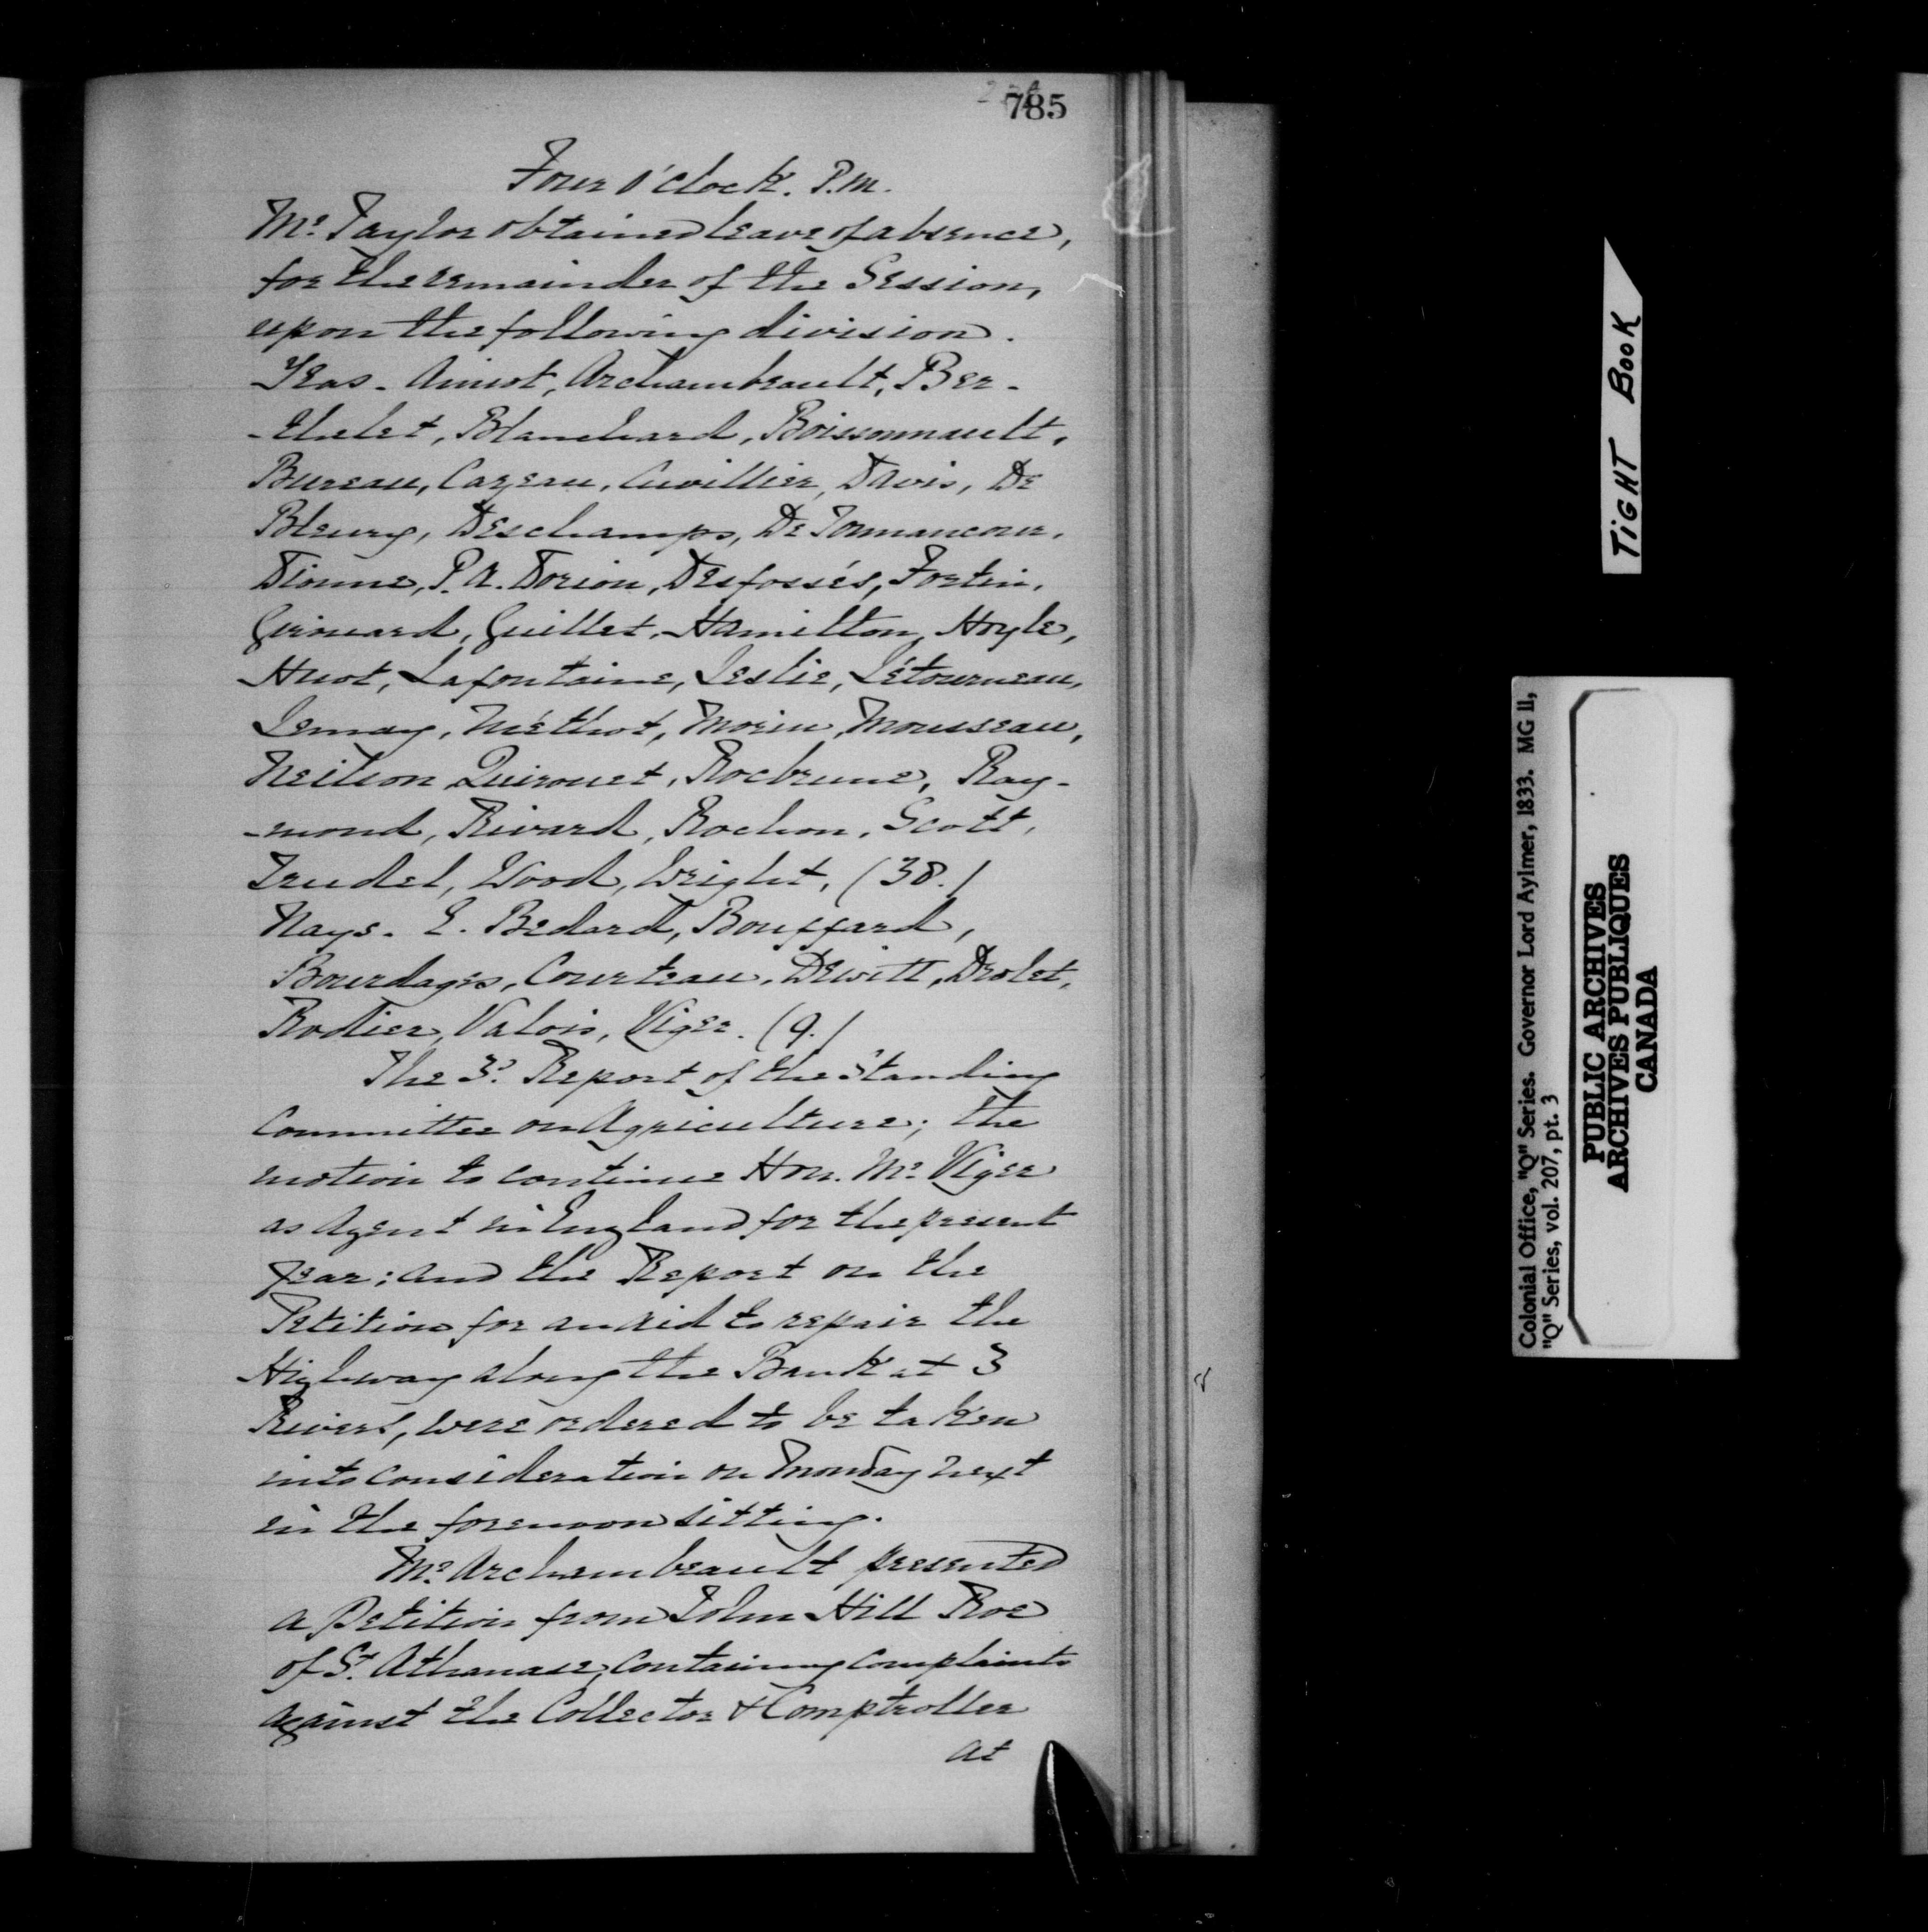 785
Four O'Clock. P.M.
Mr. Taylor obtained leave of absence,
for the remainder of the Session,
upon the following division.
Yeas - Amiot, Archambeault, Ber-
-thelet, Blanchard, Boissonnault,
Bureau, Cazeau, Cuvillier, Davis, De
Bleury, Deschamps, De Tonnancour,
Dionne, P. A. Dorion, Desfossés, Fortin,
Girouard, Guillet, Hamilton, Hoyle,
Huot, Lafontaine, Leslie, Létourneau,
Lemay, Méthot, Morin, Mousseau,
Neilson, Quirouet, Rocbrune, Ray-
-mond, Rivard, Rochon, Scott,
Trudel, Wood, Wright, (38.)
Nays. E. Bedard, Bouffard,
Bourdages, Courteau, Dewitt, Drolet,
Rodier, Valois, Viger. (9.)
The 3d. Report of the Standing
Committee on Agriculture; the
motion to continue Hon. Mr. Viger
as Agent in England for the present
year; and the Report on the
Petition for an aid to repair the
Highway along the Bank at 3
Rivers, were ordered to be taken
into consideration on Monday next
in the forenoon sitting.
Mr. Archambeault presented
a Petition from John Hill Roe
of St. Athanase, containing complaints
against the Collector & Comptroller
at
TIGHT BOOK
Colonial Office, "Q" Series. Governor Lord Aylmer, 1833. MG 11,
"Q" Series, vol. 207, pt. 3
PUBLIC ARCHIVES
ARCHIVES PUBLIQUES
CANADA